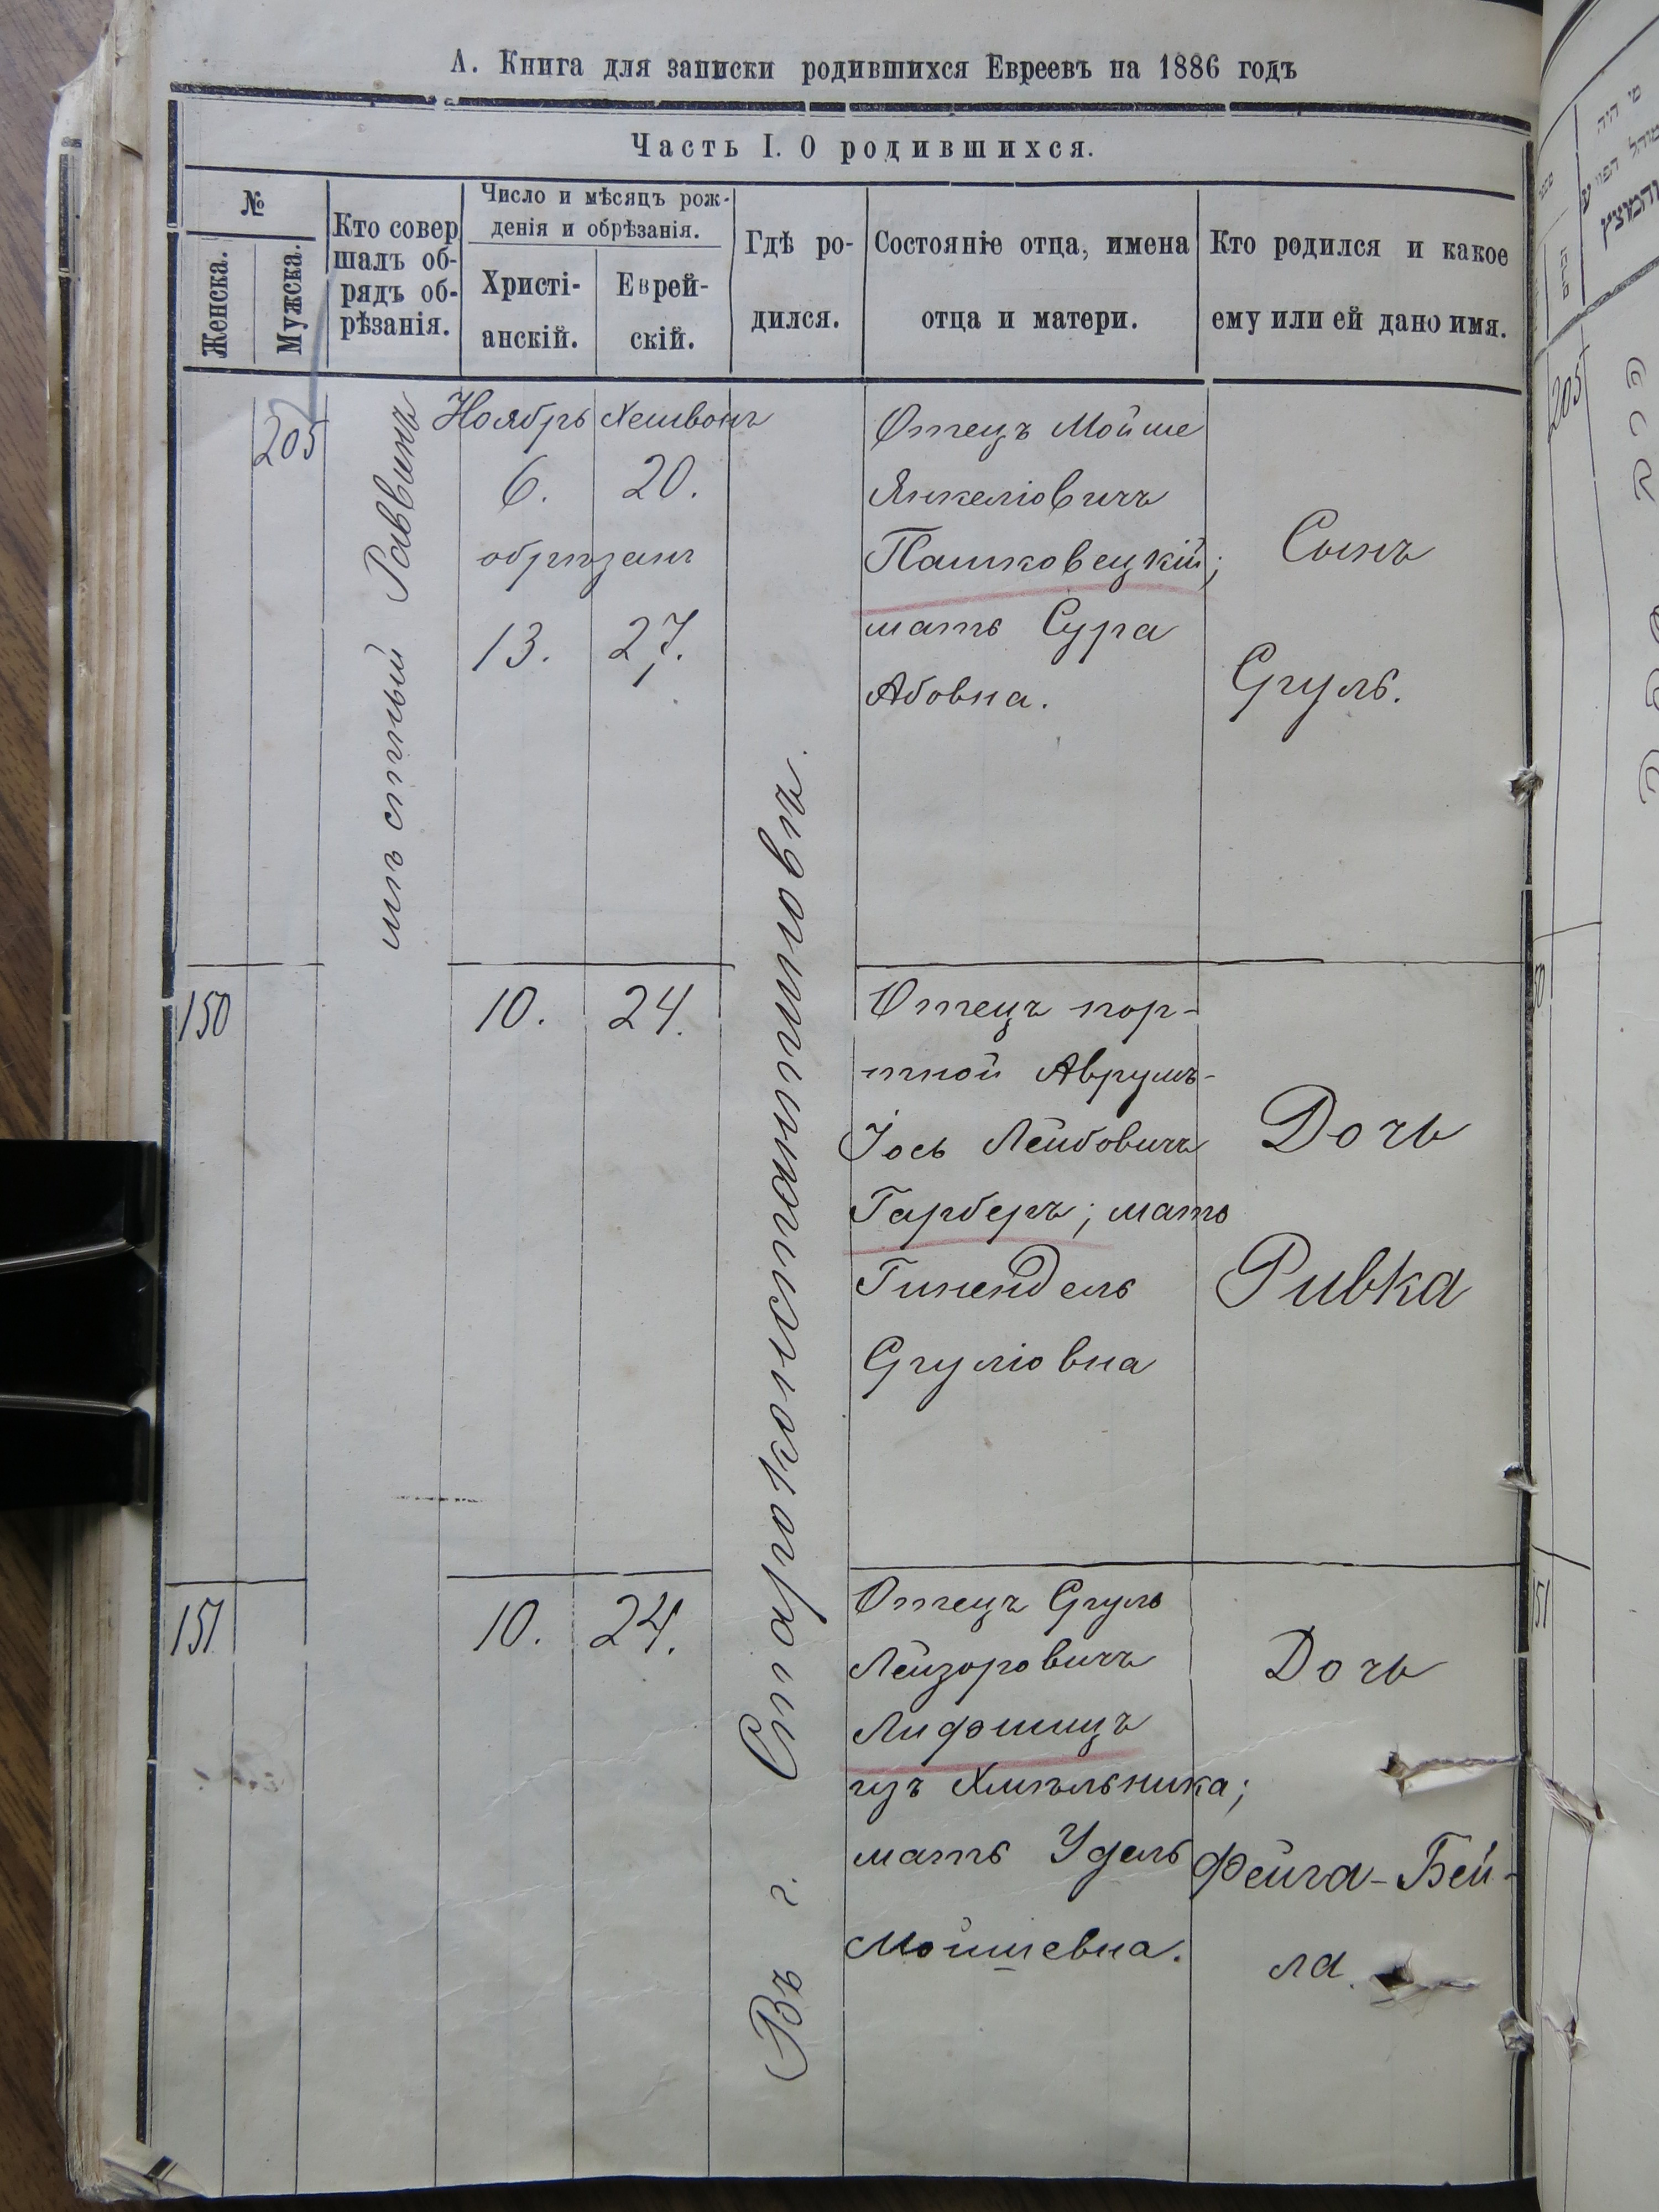 А. Книга для записки родившихся Евреевъ на 1886 годъ
Часть I. О родившихся.
№
Женска.
Мужска.
Кто совер
шалъ об-
рядъ об-
рѣзанія.
Число и мѣсяцъ рож-
денія и обрѣзанія.
Христі-
анскій.
Еврей-
скій.
Гдѣ ро-
дился.
Состояніе отца, имена
отца и матери.
Кто родился и какое
ему или ей дано имя.
205
мѣстный Раввинъ
Ноябрь Хешвонъ
6. 20.
обрѣзанъ
13. 27.
Въ г. Староконстантиновѣ.
Отецъ Мойше
Янкеліовичъ
Пашковецкій;
мать Сура
Абовна.
Сынъ
Сруль.
150
10. 24.
Отецъ пор-
тной Аврумъ-
Іось Лейбовичъ
Гарберъ; мать
Гинендель
Сруліовна
Дочь
Ривка
151
10. 24.
Отецъ Сруль
Лейзоровичъ
Лифшицъ
изъ Хмѣльника;
мать Удель
Мойшевна.
Дочь
Фейга-Бей-
ла.
205
51